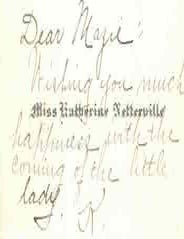 Dear Mazie:
Wishing you much
Miss Katherine Netterville
happiness with the
coming of the little
lady.
K.